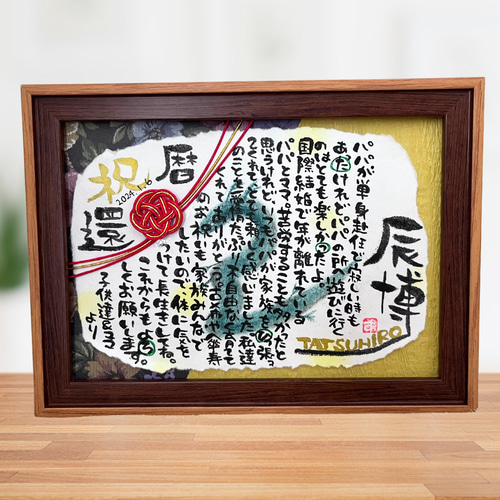 辰博
TATSUHIRO
パパが単身赴任で寂しい時も
あったけれど、パパの所へ遊びに行く
のはとても楽しかったよ
国際結婚で年が離れている
パパとママ。苦労することも多かったと
思うけれど、いつもパパが家族を引っ張っ
てくれて、とても頼もしく感じました。私達
のことを愛情たっぷり、不自由なく育てて
くれて、ありがとう。古希や傘寿
のお祝いも家族みんなで
したいので、体に気を
つけて長生きしてね。
これからもよろ
しくお願いします。
子供達 より
祝
還暦
2024.1.6